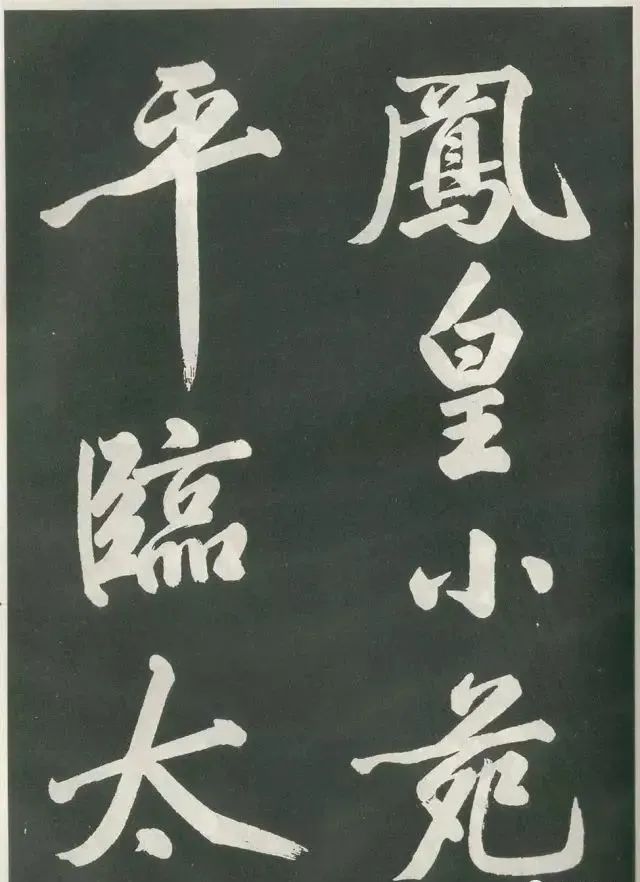 鳳皇小苑
平臨太